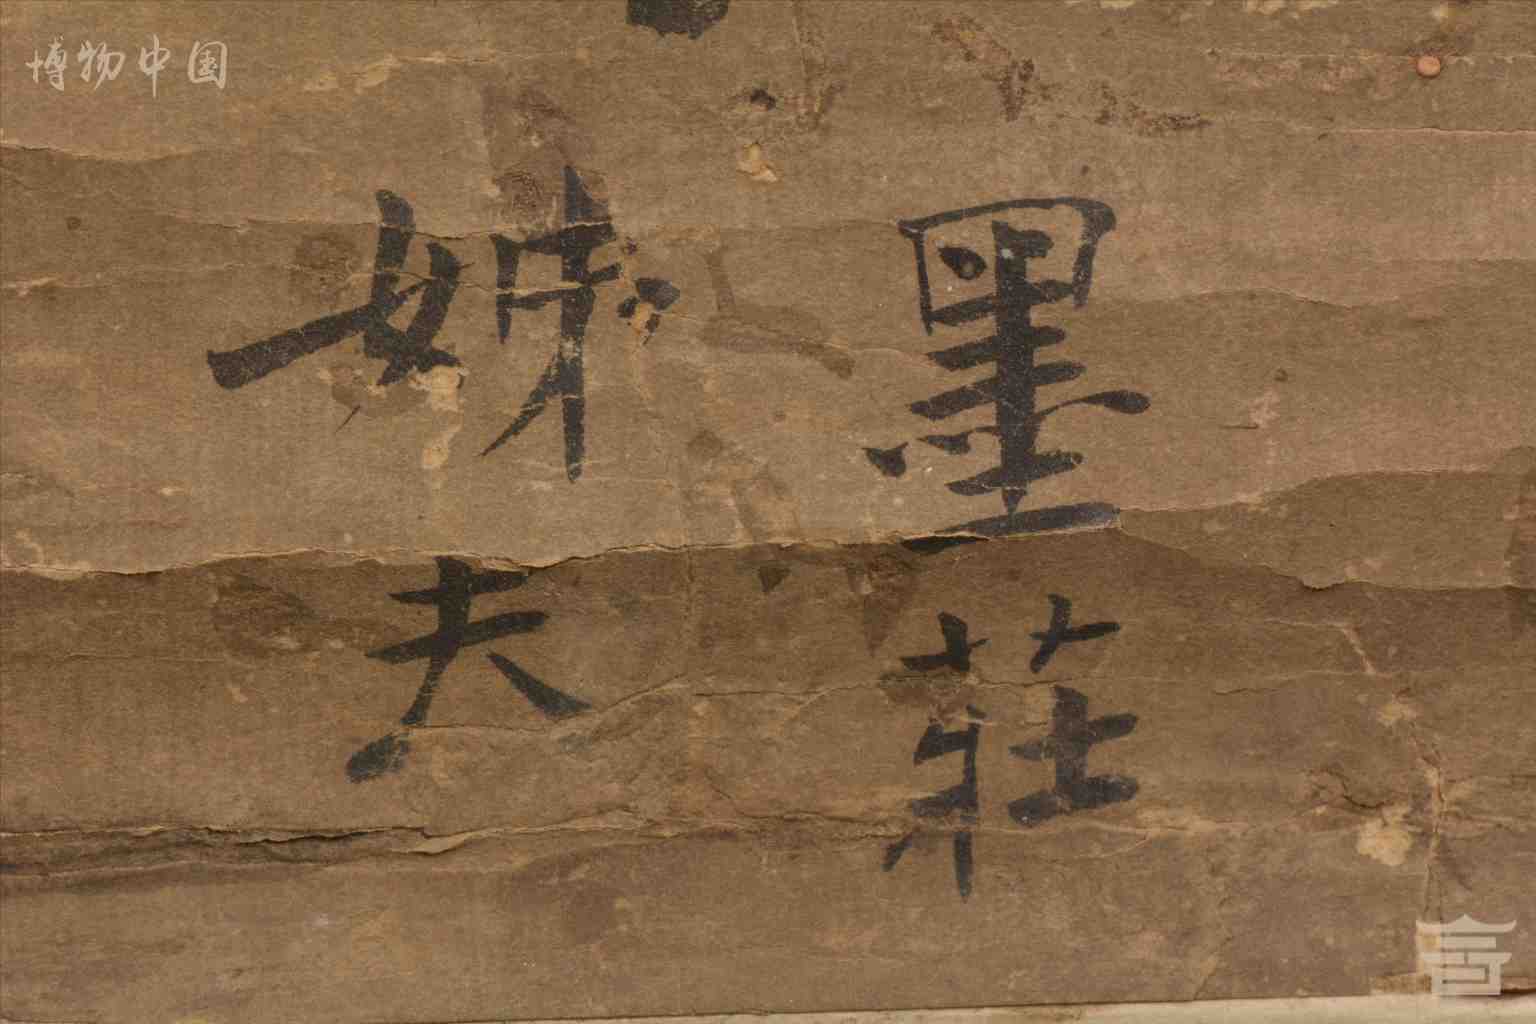 博物中国
墨莊
姊夫